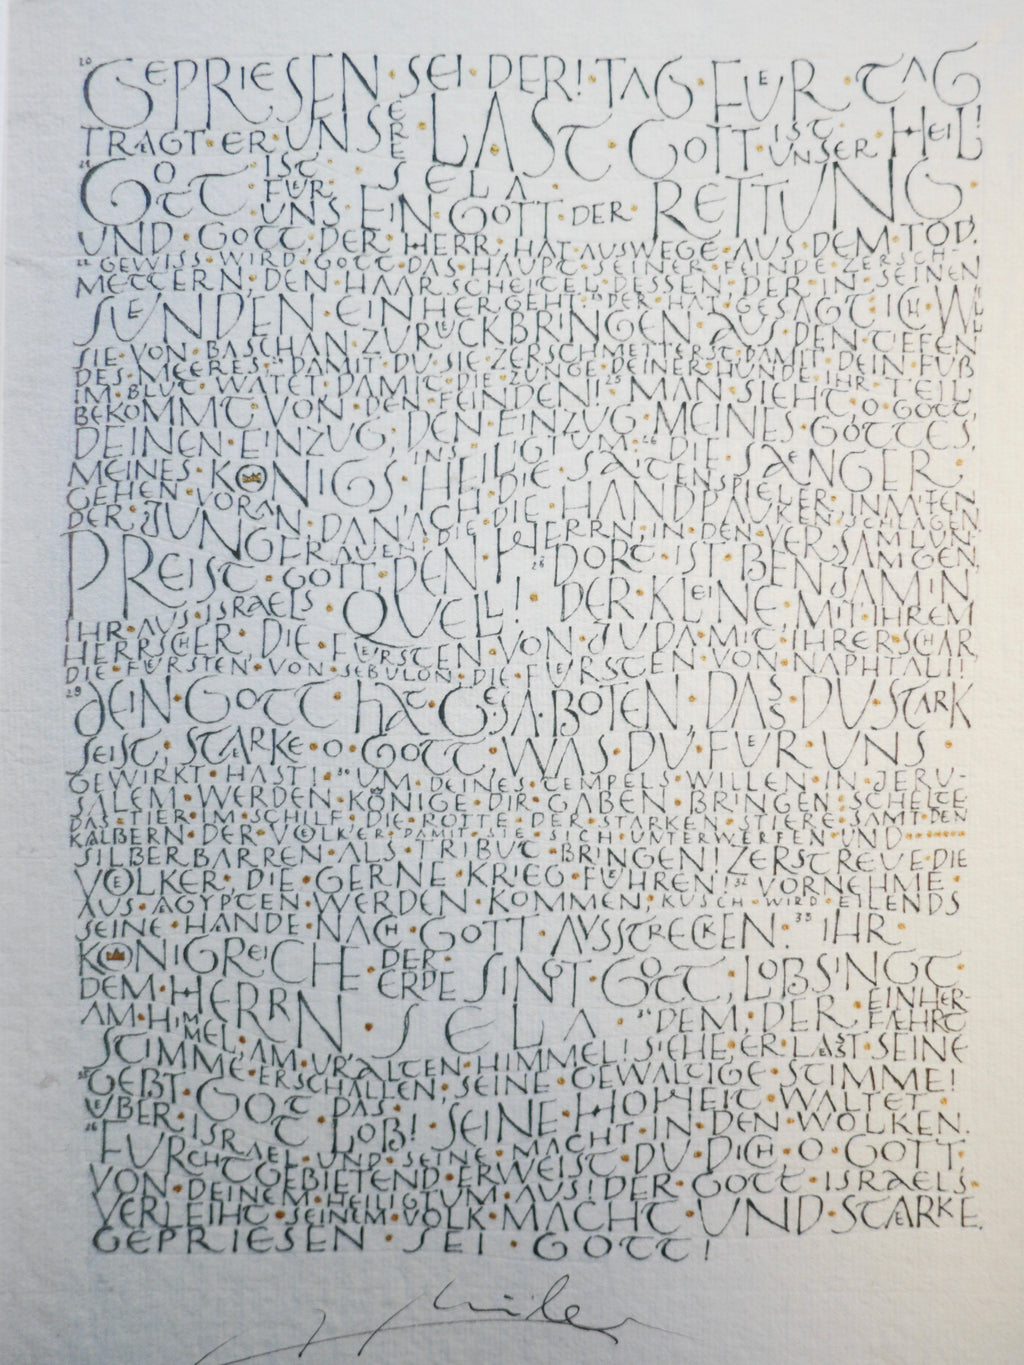 20 GEPRIESEN · SEI · DER! · TAG · FUER · TAG
TRAGT · ER · UNSERE · LAST · GOTT · IST · UNSER · HEIL!
SELA
21 GOTT · IST · FUER · UNS · EIN · GOTT · DER · RETTUNG ·
UND · GOTT, DER · HERR, HAT · AUSWEGE · AUS · DEM · TOD.
22 GEWISS · WIRD · GOTT · DAS · HAUPT · SEINER · FEINDE · ZERSCH-
METTERN, DEN · HAARSCHEITEL · DESSEN, DER · IN · SEINEN
SUENDEN · EINHERGEHT. 23 DER · HAT · GESAGT · ICH · WILL
SIE · VON · BASCHAN · ZURUECKBRINGEN · AUS · DEN · TIEFEN
DES · MEERES · DAMIT · DU · SIE · ZERSCHMETTERST, DAMIT · DEIN · FUß
IM · BLUT · WATET, DAMIT · DIE · ZUNGE · DEINER · HUNDE · IHR · TEIL
BEKOMMT · VON · DEN · FEINDEN! 25 MAN · SIEHT, O · GOTT,
DEINEN · EINZUG, DEN · EINZUG · MEINES · GOTTES,
MEINES · KÖNIGS, INS · HEILIGTUM · 26 DIE · SAENGER ·
GEHEN · VORAN, DANACH · DIE · SAITENSPIELER, INMITTEN
DER · JUNGFRAUEN, DIE · HANDPAUKEN · SCHLAGEN.
PREIST · GOTT · DEN · HERRN, IN · DEN · VERSAMLUNGEN,
IHR · AUS · ISRAELS · QUELL! 28 DORT · IST · BENJAMIN,
DER · KLEINE, MIT · IHREM
HERRSCHER, DIE · FUERSTEN · VON · JUDA · MIT · IHRER · SCHAR
DIE · FUERSTEN · VON · SEBULON, DIE · FUERSTEN · VON · NAPHTALI!
29 DEIN · GOTT · HAT · GEBOTEN, DASS · DU · STARK
SEIST, STARKE · O · GOTT, WAS · DU · FUER · UNS ·
GEWIRKT · HAST! · 30 UM · DEINES · TEMPELS · WILLEN · IN · JERU-
SALEM · WERDEN · KÖNIGE · DIR · GABEN · BRINGEN · SCHELTE
DAS · TIER · IM · SCHILF, DIE · ROTTE · DER · STARKEN · STIERE · SAMT · DEN
KÄLBERN · DER · VOELKER · DAMIT · SIE · SICH · UNTERWERFEN · UND
SILBERBARREN · ALS · TRIBUT · BRINGEN! ZERSTREUE · DIE
VOELKER, DIE · GERNE · KRIEG · FUEHREN! 32 VORNEHME ·
AUS · ÄGYPTEN · WERDEN · KOMMEN; KUSCH · WIRD · EILENDS
SEINE · HAENDE · NACH · GOTT · AUSSTRECKEN. 33 IHR ·
KÖNIGREICHE · DER · ERDE · SINGT · GOTT, LOBSINGT ·
DEM · HERRN · SELA · 34 DEM, DER · EINHER-
FAEHRT
AM · HIMMEL, AM · URALTEN · HIMMEL! SIEHE, ER · LAEßT · SEINE
STIMME · ERSCHALLEN, SEINE · GEWALTIGE · STIMME!
35 GEBT · GOTT · DAS · LOB! SEINE · HOHHEIT · WALTET ·
UEBER · ISRAEL · UND · SEINE · MACHT · IN · DEN · WOLKEN.
36 FURCHTGEBIETEND · ERWEIST · DU · DICH · O · GOTT,
VON · DEINEM · HEILIGTUM · AUS! DER · GOTT · ISRAELS ·
VERLEIHT · SEINEM · VOLK · MACHT · UND · STAERKE.
GEPRIESEN · SEI · GOTT!